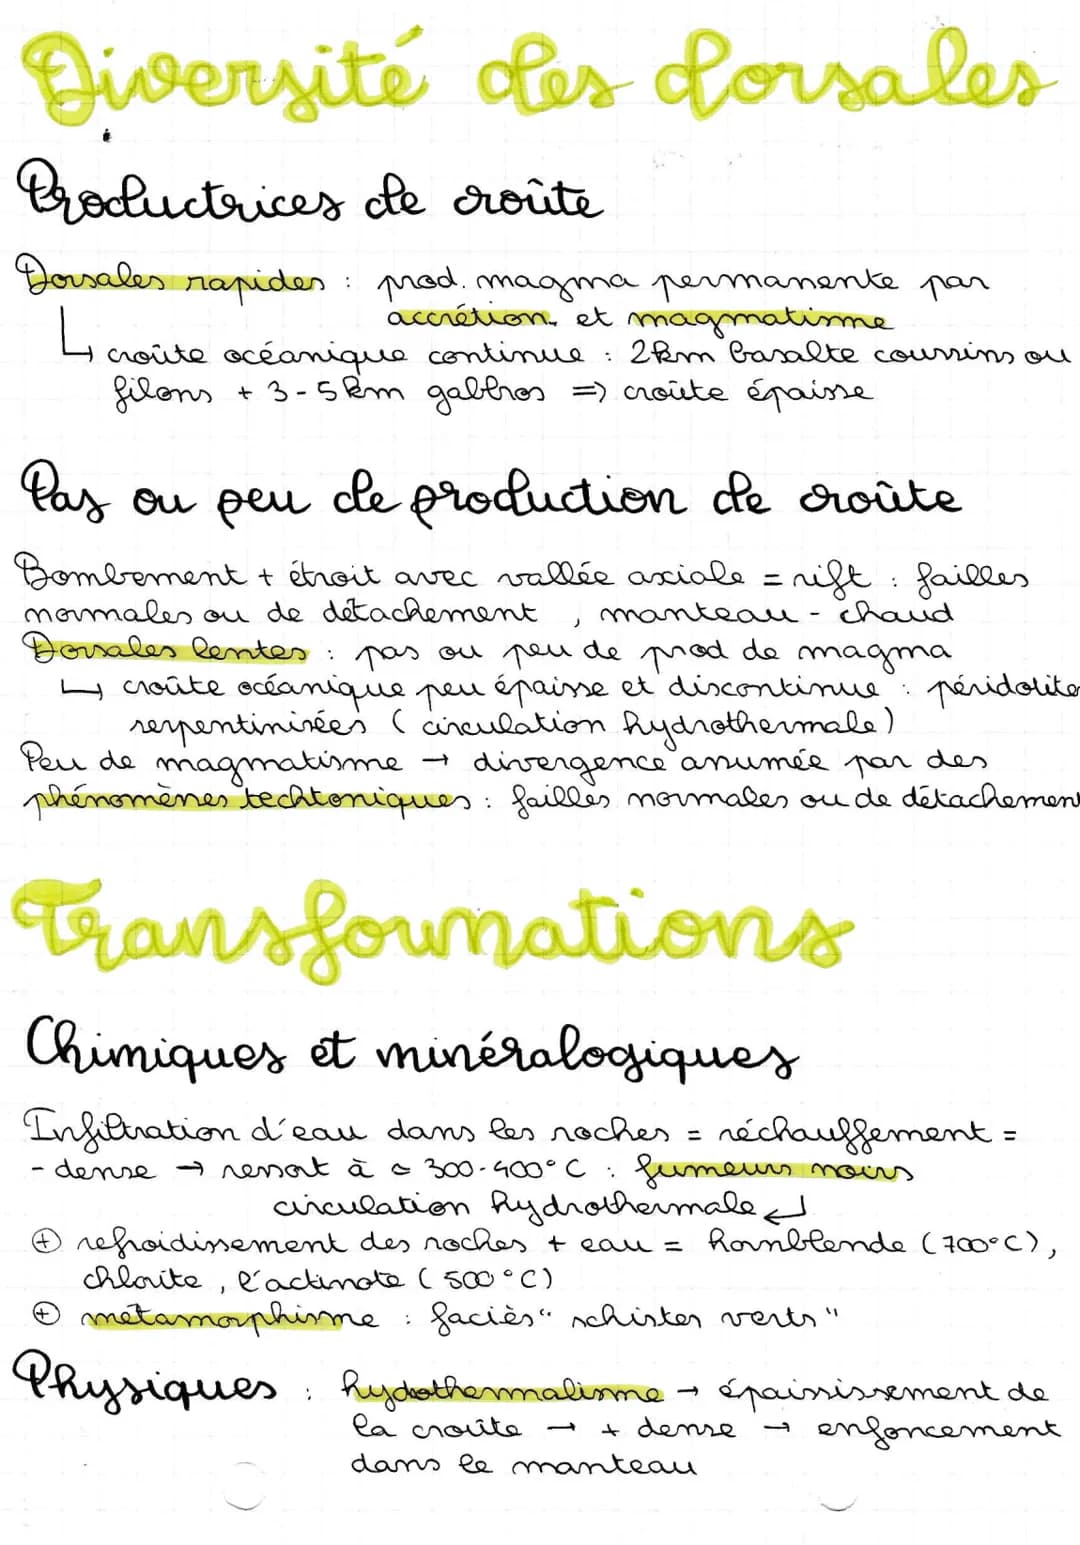 Diversité des dorsales
Productrices de croûte
Dorsales rapides : prod. magma permanente par
accrétion et magmatisme
↳ croûte océanique continue : 2km basalte coussins ou
filons + 3-5km gabbros => croûte épaisse
Pas ou peu de production de croûte
Bombement + étroit avec vallée axiale = rift : failles
normales ou de détachement, manteau - chaud
Dorsales lentes : pas ou peu de prod de magma
↳ croûte océanique peu épaisse et discontinue : péridolites
serpentinisées (circulation hydrothermale)
Peu de magmatisme → divergence assumée par des
phénomènes techtoniques : failles normales ou de détachement
Transformations
Chimiques et minéralogiques
Infiltration d'eau dans les roches = réchauffement =
- dense → ressort à ≃ 300-400°C : fumeurs noirs
circulation hydrothermale ↵
⊕ refroidissement des roches + eau = hornblende (700°C),
chlorite, l'actinote (500°C)
⊕ métamorphisme : faciès "schistes verts"
Physiques : hydothermalisme → épaississement de
la croûte → + dense → enfoncement
dans le manteau